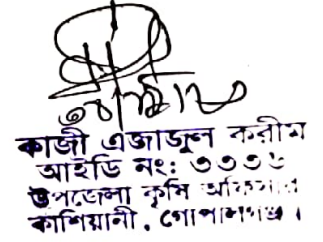 কাজী এজাজুল করীম
আইডি নং: ৩৩৩৬
উপজেলা কৃষি অফিসার
কাশিয়ানী, গোপালগঞ্জ।